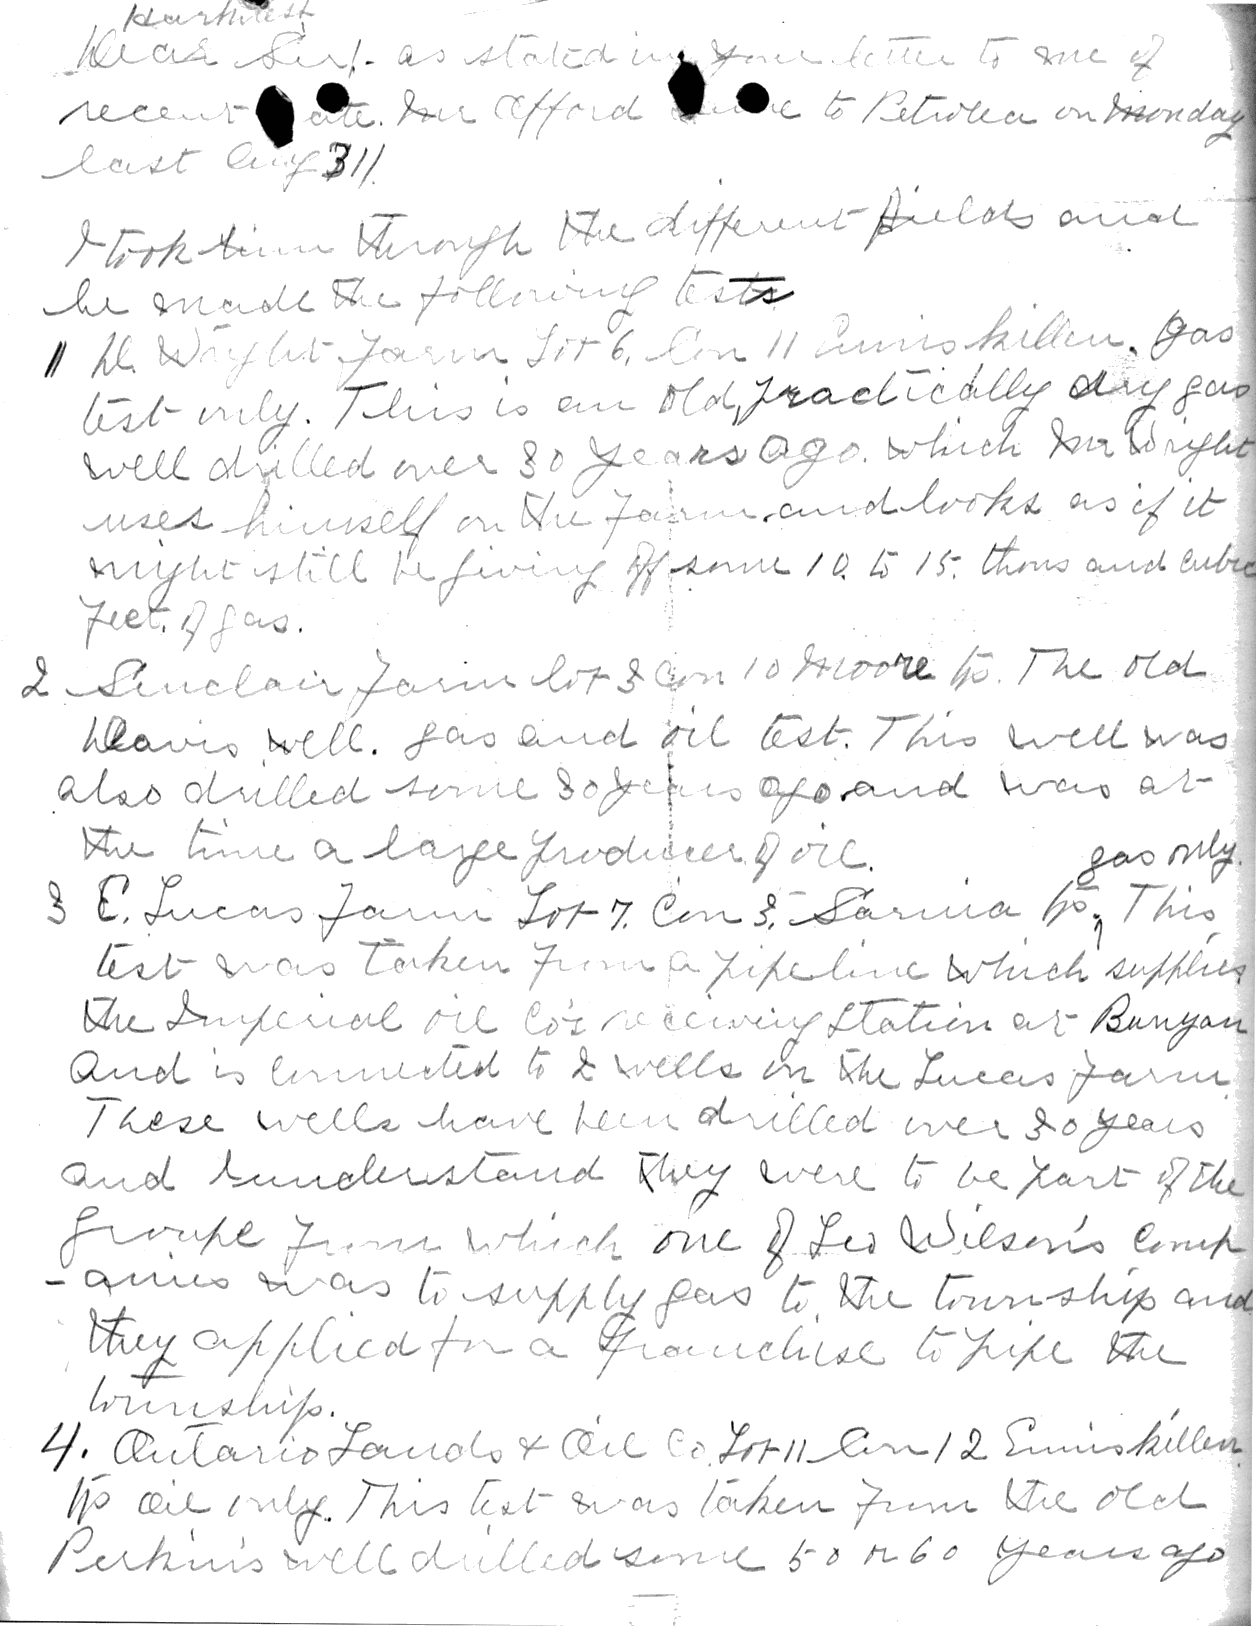 Harkness
Dear Sir/- as stated in your letter to me of
recent ate. Mr Afford to Petrolea on Monday
last Aug 311.
I took him through the different fields and
he made the following tests
1 D. Wright Farm Lot 6, Con 11 Enniskillen. gas
test only. This is an old, practically dry gas
well drilled over 30 years ago. which Mr Wright
uses himself on the Farm. and looks as if it
might still be giving off some 10. to 15. thousand cubic
feet. of gas.
2 Sinclair Farm lot 3 Con 10 Moore tp. The old
Davis well. gas and oil test. This well was
also drilled some 30 years ago. and was at
the time a large producer of oil.
gas only.
3 E. Lucas Farm Lot 7. Con 3. Sarnia tp. This
test was taken from a pipe line which supplies
the Imperial oil Co's receiving station at Bunyan
and is connected to 2 wells on the Lucas Farm
These wells have been drilled over 30 years
and I understand they were to be part of the
groupe from which one of Leo Wilson's Comp
-anies was to supply gas to the township and
they applied for a franchise to pipe the
township.
4. Ontario Lands & Oil Co. Lot 11 Con 12 Enniskillen
tp oil only. This test was taken from the old
Perkins well drilled some 50 or 60 years ago